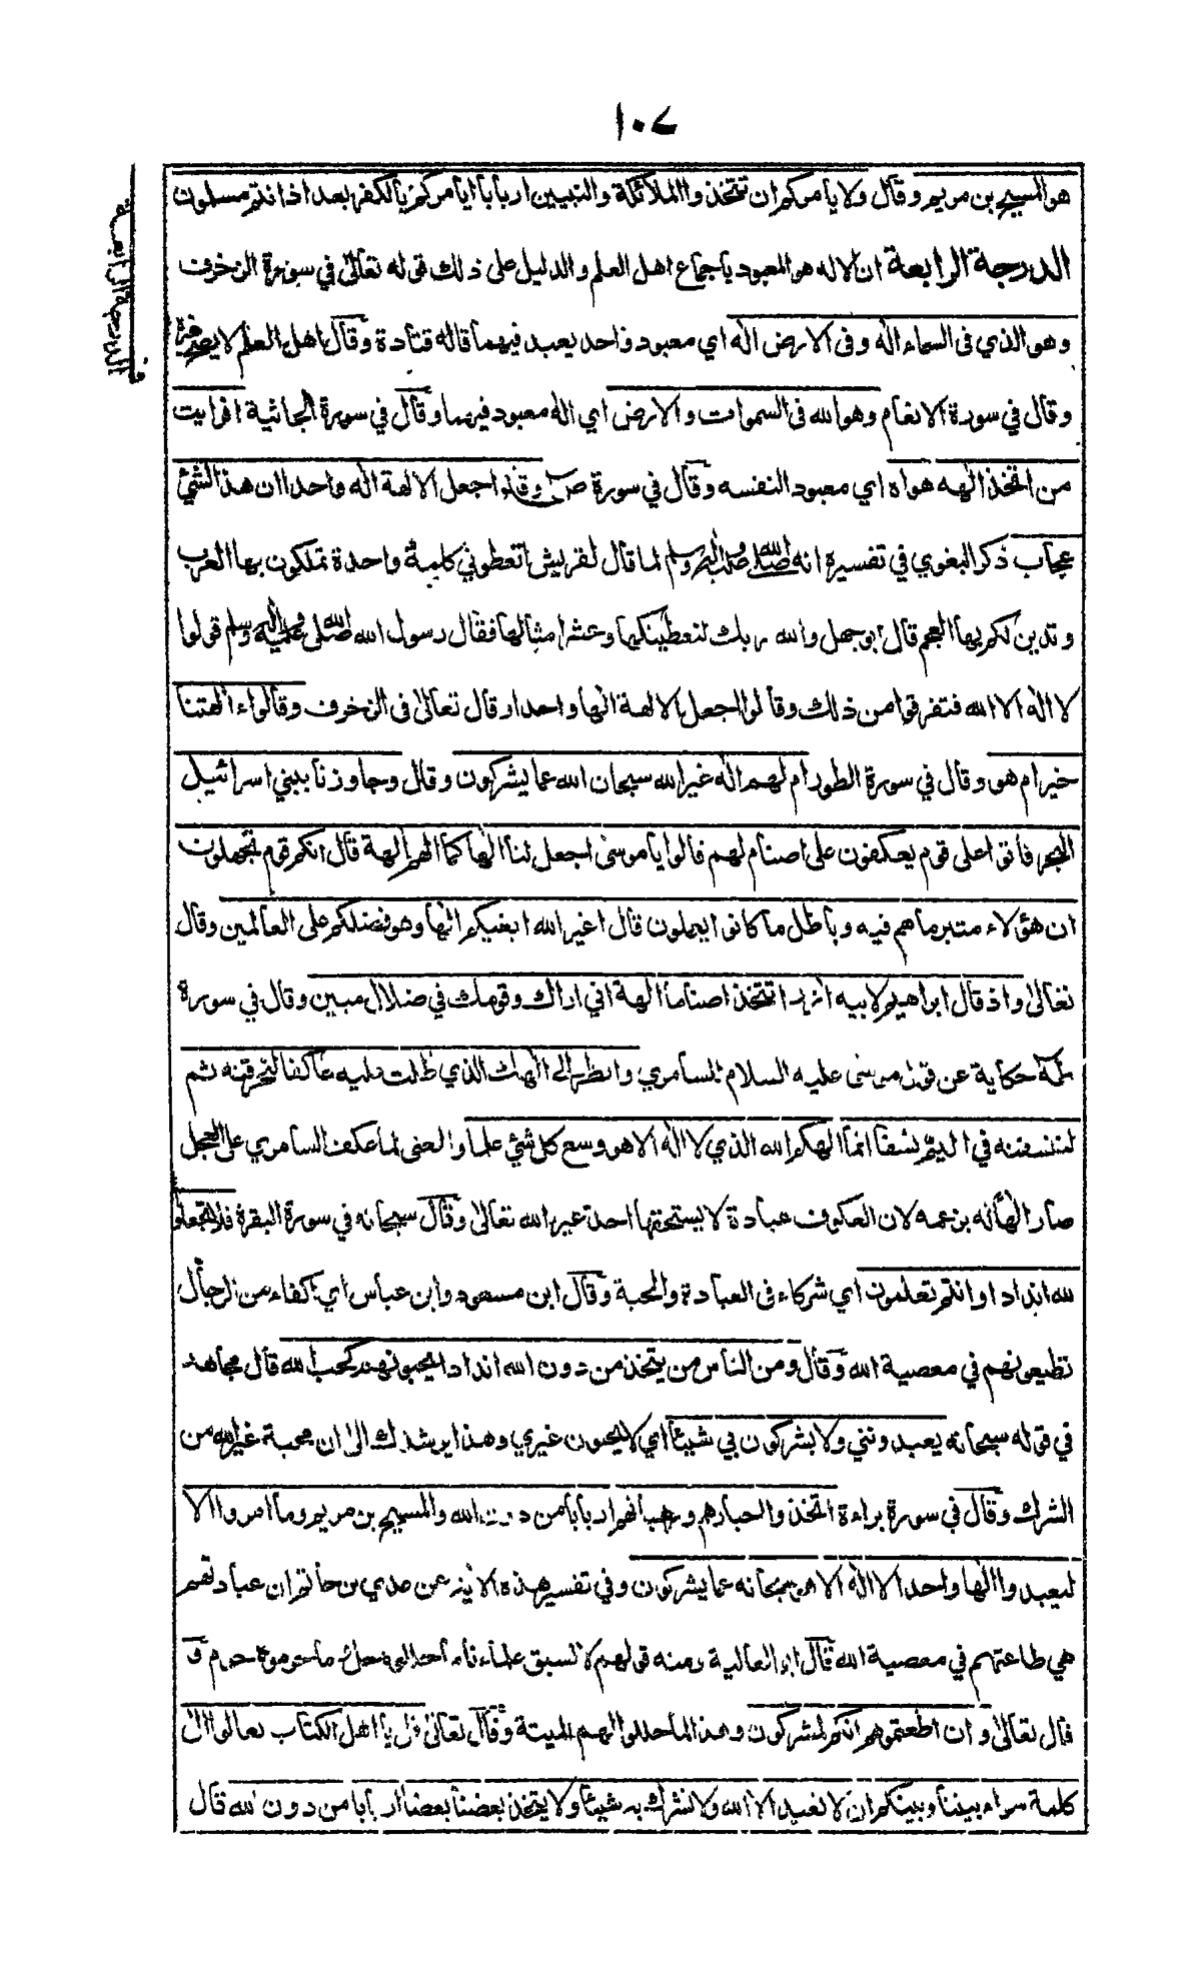 ١٠٧
في الدرجة الرابعة
هو المسيح بن مريم وقال ولا يأمركم ان تتخذوا الملائكة والنبيين اربابا ايأمركم بالكفر بعد اذ انتم مسلمون
الدرجة الرابعة ان الاله هو المعبود باجماع اهل العلم والدليل على ذلك قوله تعالى في سورة الزخرف
وهو الذي في السماء اله وفي الارض اله اي معبود واحد يعبد فيهما قاله قتادة وقال اهل العلم لا يصح غيره
وقال في سورة الانعام وهو الله في السموات والارض اي اله معبود فيهما وقال في سورة الجاثية افرايت
من اتخذ الهه هواه اي معبود النفسه وقال في سورة ص وقالوا اجعل الالهة اله واحدا ان هذا لشيئ
عجاب ذكر البغوي في تفسيره انه صلى الله عليه وآله وسلم لما قال لقريش اتعطوني كلمة واحدة تملكون بها العرب
وتدين لكم بها العجم قال ابو جهل والله ربك لنعطينكها وعشرا مثالها فقال رسول الله صلى الله عليه وآله وسلم قولوا
لا اله الا الله فتفرقوا من ذلك وقالوا اجعل الالهة الها واحدا وقال تعالى في الزخرف وقالوا ءالهتنا
خير ام هو وقال في سورة الطور ام لهم اله غير الله سبحان الله عما يشركون وقال وجاوزنا ببني اسرائيل
البحر فأتوا على قوم يعكفون على اصنام لهم قالوا يا موسى اجعل لنا الها كما لهم الهة قال انكم قوم تجهلون
ان هؤلاء متبر ما هم فيه وباطل ما كانوا يعملون قال اغير الله ابغيكم الها وهو فضلكم على العالمين وقال
تعالى واذ قال ابراهيم لابيه ازر اتتخذ اصناما الهة اني اراك وقومك في ضلال مبين وقال في سورة
طه حكاية عن قول موسى عليه السلام للسامري وانظر الى الهك الذي ظلت عليه عاكفا لنحرقنه ثم
لننسفنه في اليم نسفا انما الهكم الله الذي لا اله الا هو وسع كل شيئ علما والمعنى لما عكف السامري على العجل
صار الها له بزعمه لان العكوف عبادة لا يستحقها احد غير الله تعالى وقال سبحانه في سورة البقرة فلا تجعلوا
لله اندادا وانتم تعلمون اي شركاء في العبادة والمحبة وقال ابن مسعود وابن عباس اي اكفاء من الرجال
تطيعونهم في معصية الله وقال ومن الناس من يتخذ من دون الله اندادا يحبونهم كحب الله قال مجاهد
في قوله سبحانه يعبدونني ولا يشركون بي شيئا اي لا يحبون غيري وهذا يرشدك الى ان محبة غير الله من
الشرك وقال في سورة براءة اتخذوا احبارهم ورهبانهم اربابا من دون الله والمسيح بن مريم وما امروا الا
ليعبدوا الها واحدا لا اله الا هو سبحانه عما يشركون وفي تفسير هذه الاية عن عدي بن حاتم ان عبادتهم
هي طاعتهم في معصية الله قال ابو العالية ومنه قولهم لا نسبق علماءنا ما حرموه حرام و
قال تعالى وان اطعتموهم انكم لمشركون وهذا لما احلوا لهم الميتة وقال تعالى قل يا اهل الكتاب تعالوا الى
كلمة سواء بيننا وبينكم ان لا نعبد الا الله ولا نشرك به شيئا ولا يتخذ بعضنا بعضا اربابا من دون الله قال